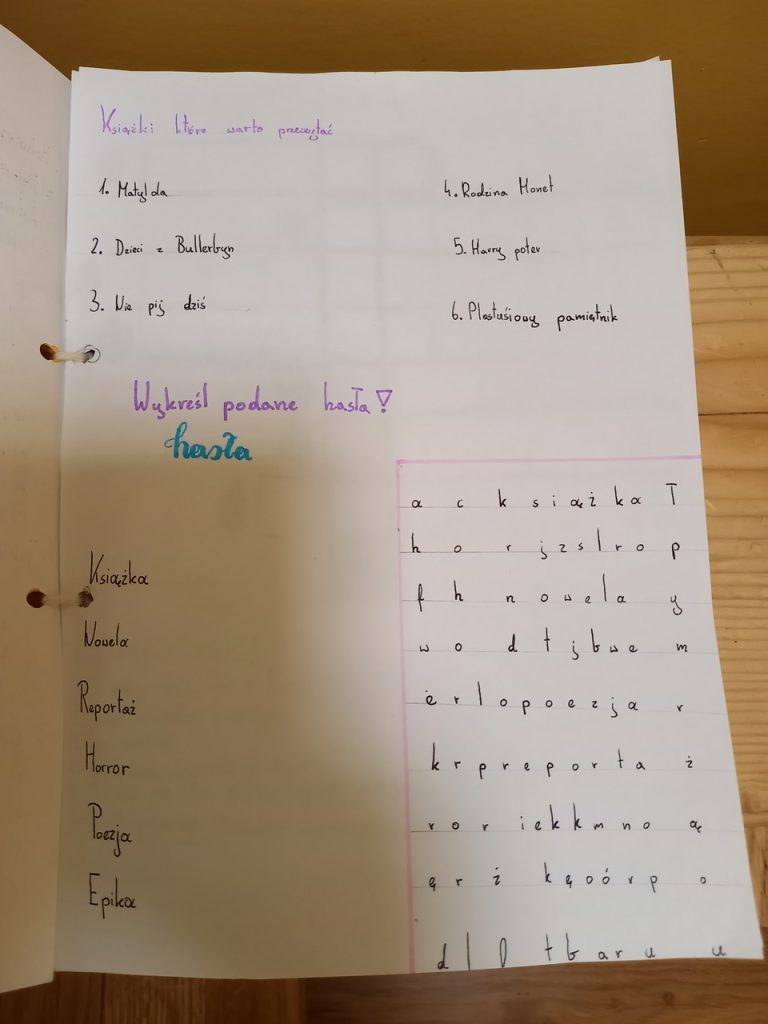 Książki które warto przeczytać
1. Matylda
2. Dzieci z Bullerbyn
3. Nie pij dziś
4. Rodzina Monet
5. Harry poter
6. Plastusiowy pamiętnik
Wykreśl podane hasła!
hasła
Książka
Nowela
Reportaż
Horror
Poezja
Epika
a c k s i ą ż k a T
h o r j z s l r o p
f h n o w e l a y
w o d t j b w e m
e r l o p o e z j a r
k r p r e p o r t a ż
r o r i e k k m n o ą
ę r ż k ę o ó r p o
d l D t b a r u u